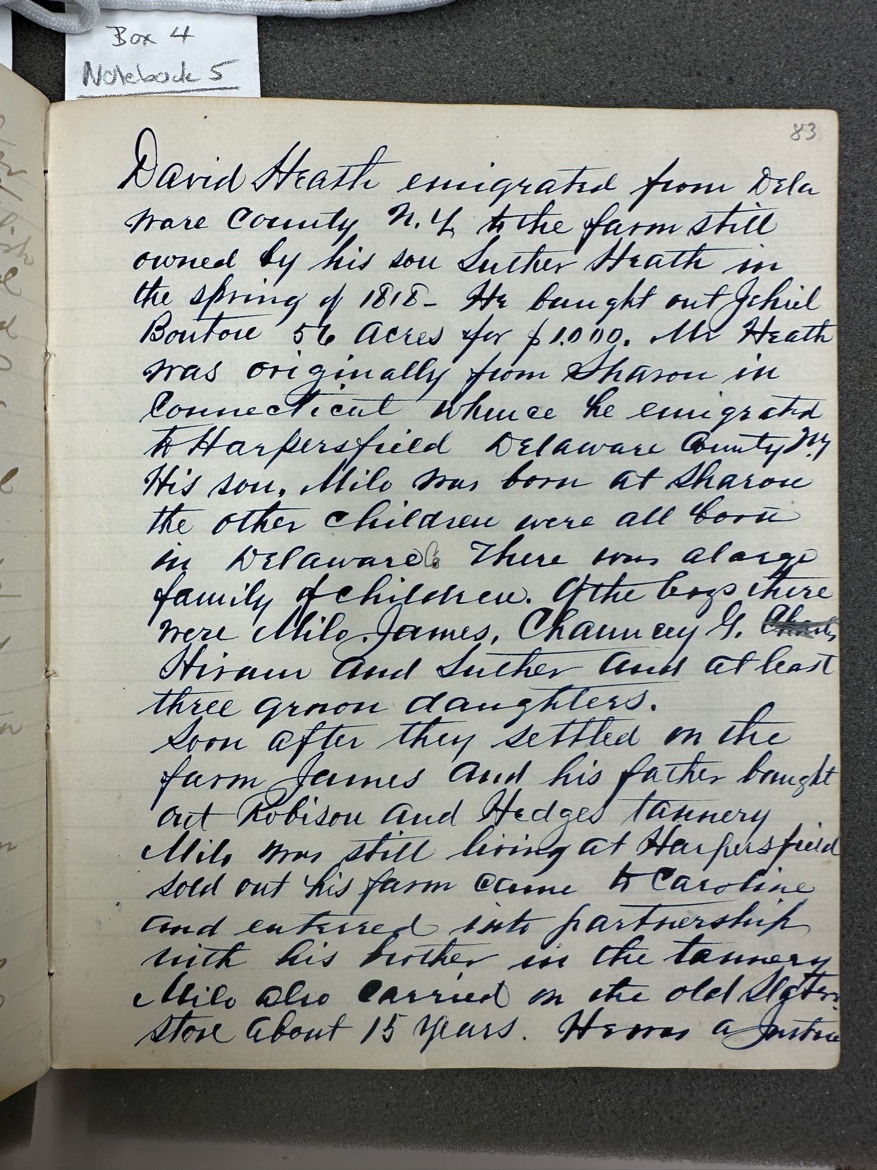 Box 4
Notebook 5
83
David Heath emigrated from Dela
ware County N.Y. to the farm still
owned by his son Luther Heath in
the spring of 1818 - He bought out Jehiel
Bouton 56 Acres for $1.000. Mr Heath
was originally from Sharon in
Connecticut whence he emigrated
to Harpersfield Delaware County N.Y
His son, Milo was born at Sharon
the other children were all born
in Delaware There was a large
family of children. Of the boys there
were Milo. James, Chauncey G. Charls
Hiram and Luther and at least
three grown daughters.
Soon after they settled on the
farm James and his father bought
out Robison and Hedges tannery
Milo was still living at Harpersfield
sold out his farm came to Caroline
and enterred into partnership
with his brother in the tannery
Milo also carried on the old
store about 15 years. He was a Justice